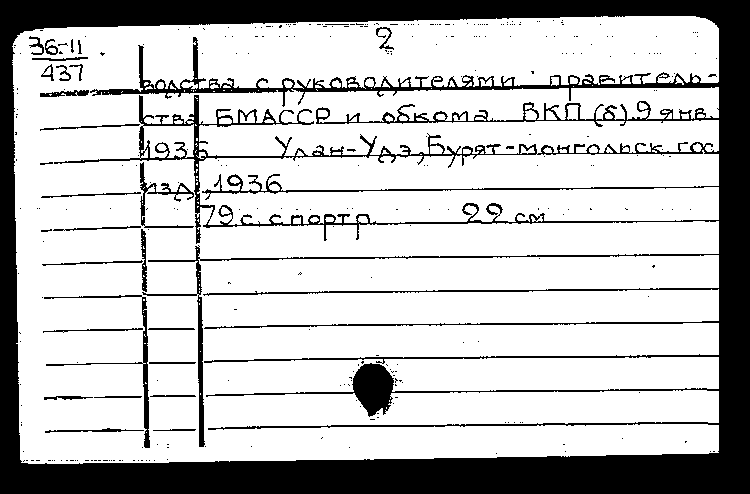 2
36-11
437
водства с руководителями правитель-
ства БМАССР и обкома ВКП(б) 9 янв.
1936. Улан-Удэ, Бурят-монгольск. гос
изд., 1936.
79 с. с портр. 22 см